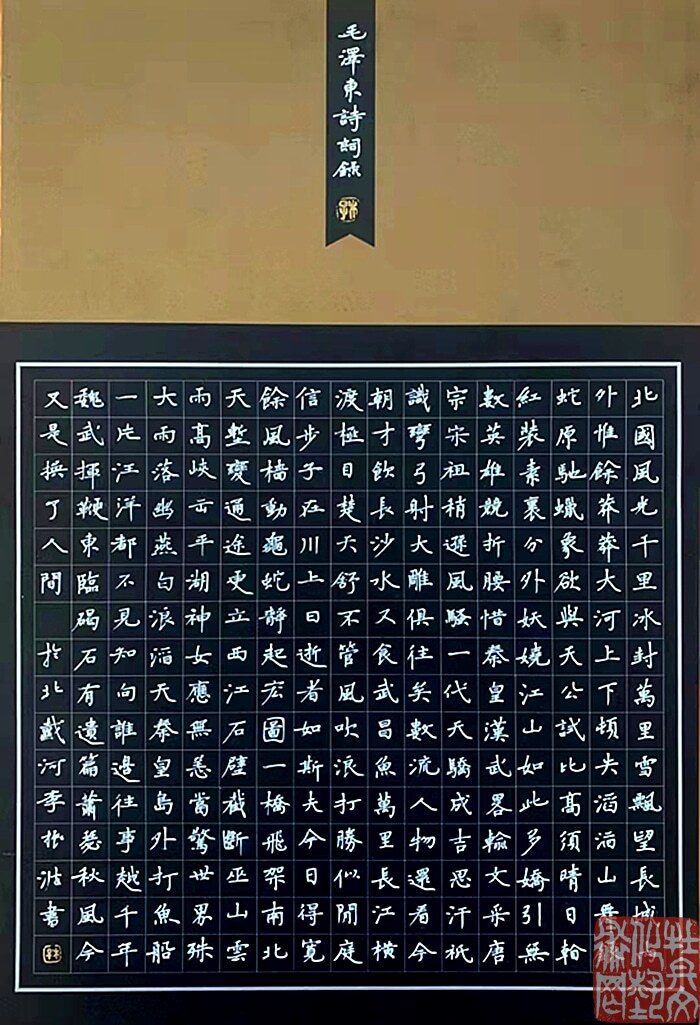 毛澤東詩詞錄
北國風光千里冰封萬里雪飄望長城
外惟餘莽莽大河上下頓失滔滔山舞
蛇原馳蠟象欲與天公試比高須晴日
紅裝素裹分外妖嬈江山如此多嬌引無
數英雄競折腰惜秦皇漢武畧輸文采唐
宗宋祖稍遜風騷一代天驕成吉思汗祇
識彎弓射大雕俱往矣數流人物還看今
朝才飲長沙水又食武昌魚萬里長江橫
渡極目楚天舒不管風吹浪打勝似閒庭
信步子在川上曰逝者如斯夫今日得寬
餘風檣動龜蛇靜起宏圖一橋飛架南北
天塹變通途更立西江石壁截斷巫山雲
雨高峽出平湖神女應無恙當驚世界殊
大雨落幽燕白浪滔天秦皇島外打魚船
一片汪洋都不見知向誰邊往事越千年
魏武揮鞭東臨碣石有遺篇蕭瑟秋風今
又是換了人間 於北戴河李書